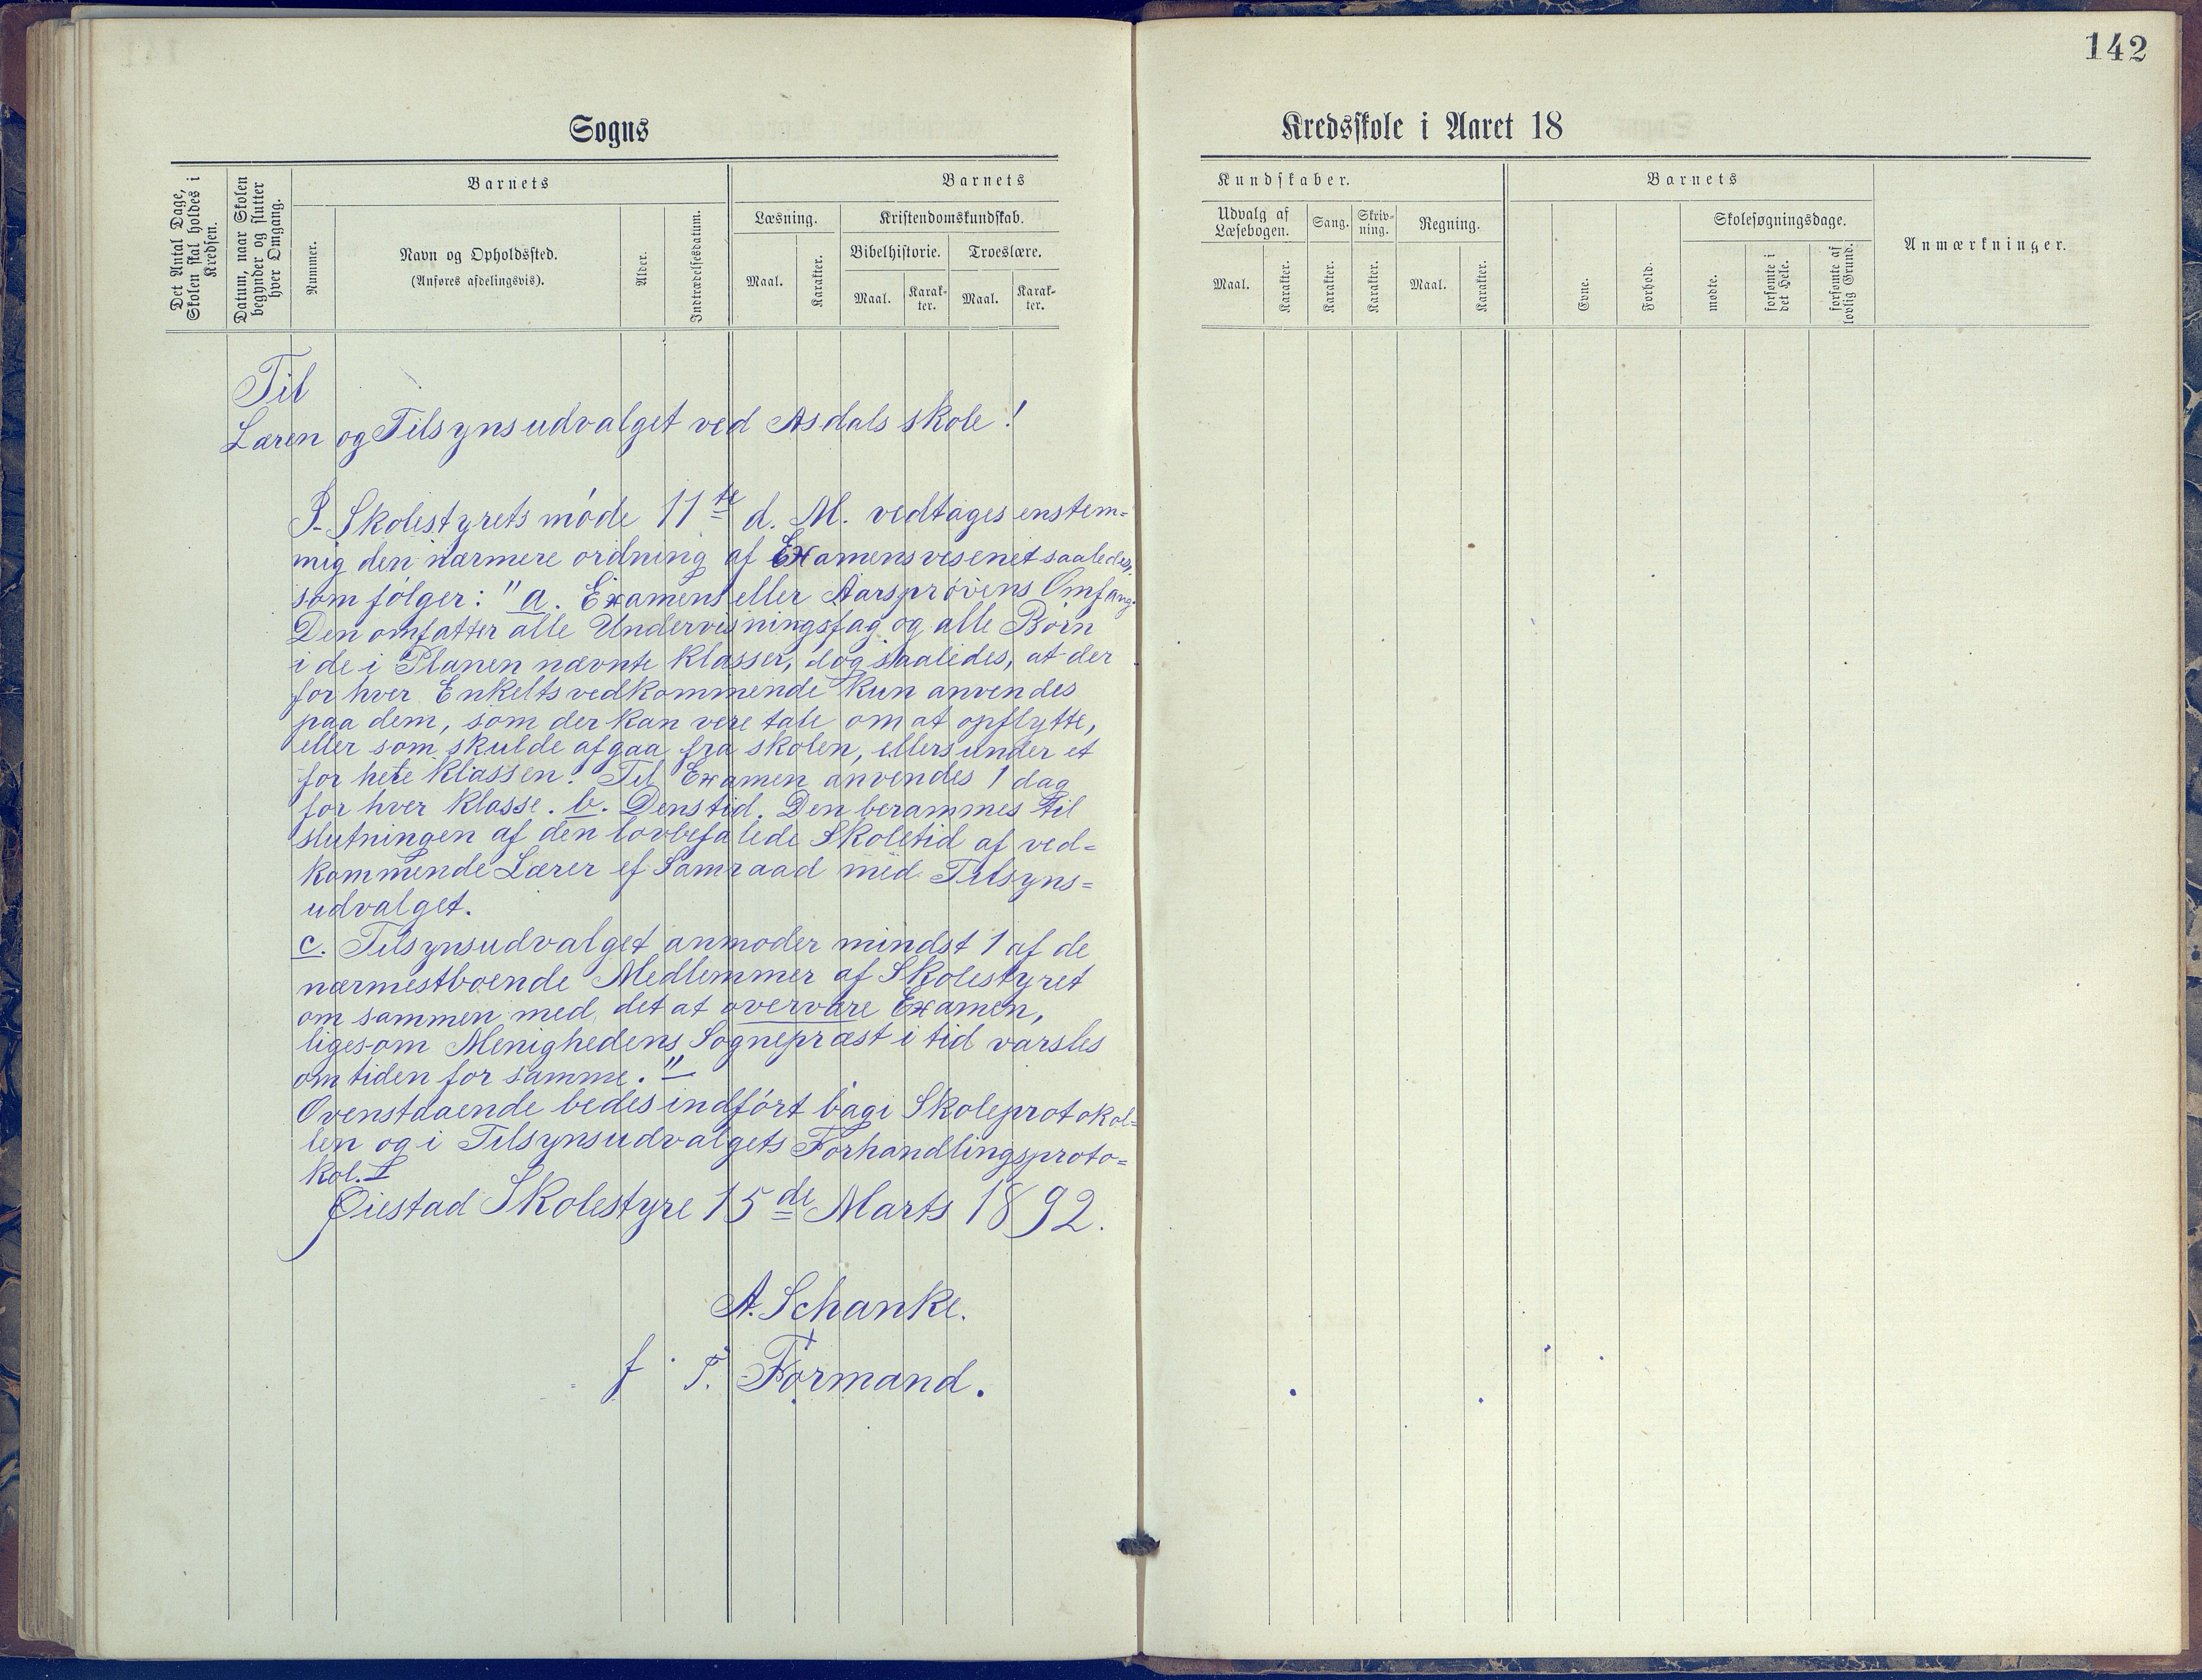 142
Sogns
Kredsskole i Aaret 18
Det Antal Dage, Skolen skal holdes i Kredsen.
Datum, naar Skolen begynder og slutter hver Omgang.
Barnets
Nummer.
Navn og Opholdssted.
(Anføres afdelingsvis).
Alder.
Indtrædelsesdatum.
Barnets
Læsning.
Maal.
Karakter.
Kristendomskundskab.
Bibelhistorie.
Maal.
Karak-
ter.
Troeslære.
Maal.
Karak-
ter.
Kundskaber.
Udvalg af
Læsebogen.
Maal.
Karakter.
Sang.
Karakter.
Skriv-
ning.
Karakter.
Regning.
Maal.
Karakter.
Barnets
Evne.
Forhold.
Skolesøgningsdage.
mødte.
forsømte i
det Hele.
forsømte af
lovlig Grund.
Anmærkninger.
Til
Læren og Tilsynsudvalget ved Asdals skole!
I Skolestyrets møde 11te d. M. vedtages enstem=
mig den nærmere ordning af Examensvesenet saaledes
som følger: "a. Examens eller Aarsprøvens Omfang.
Den omfatter alle Undervisningsfag og alle Børn
i de i Planen nævnte Klasser, dog saaledes, at der
for hver Enkelts vedkommende kun anvendes
paa dem, som der kan vere tale om at opflytte,
eller som skulde afgaa fra skolen, ellers under et
for hele Klassen. Til Examen anvendes 1 dag
for hver Klasse. b. Dens tid. Den berammes til
slutningen af den lovbefalede Skoletid af ved=
kommende Lærer ef Samraad med Tilsyns=
udvalget.
c. Tilsynsudvalget anmoder mindst 1 af de
nærmestboende Medlemmer af Skolestyret
om sammen med det at overvære Examen,
ligesom Menighedens Sognepræst i tid varsles
om tiden for samme."
Ovenstaaende bedes indført bagi Skoleprotokol=
len og i Tilsynsudvalgets Forhandlingsproto=
kol.
Øiestad Skolestyre 15de Marts 1892.
A. Schanke.
f. T. Formand.